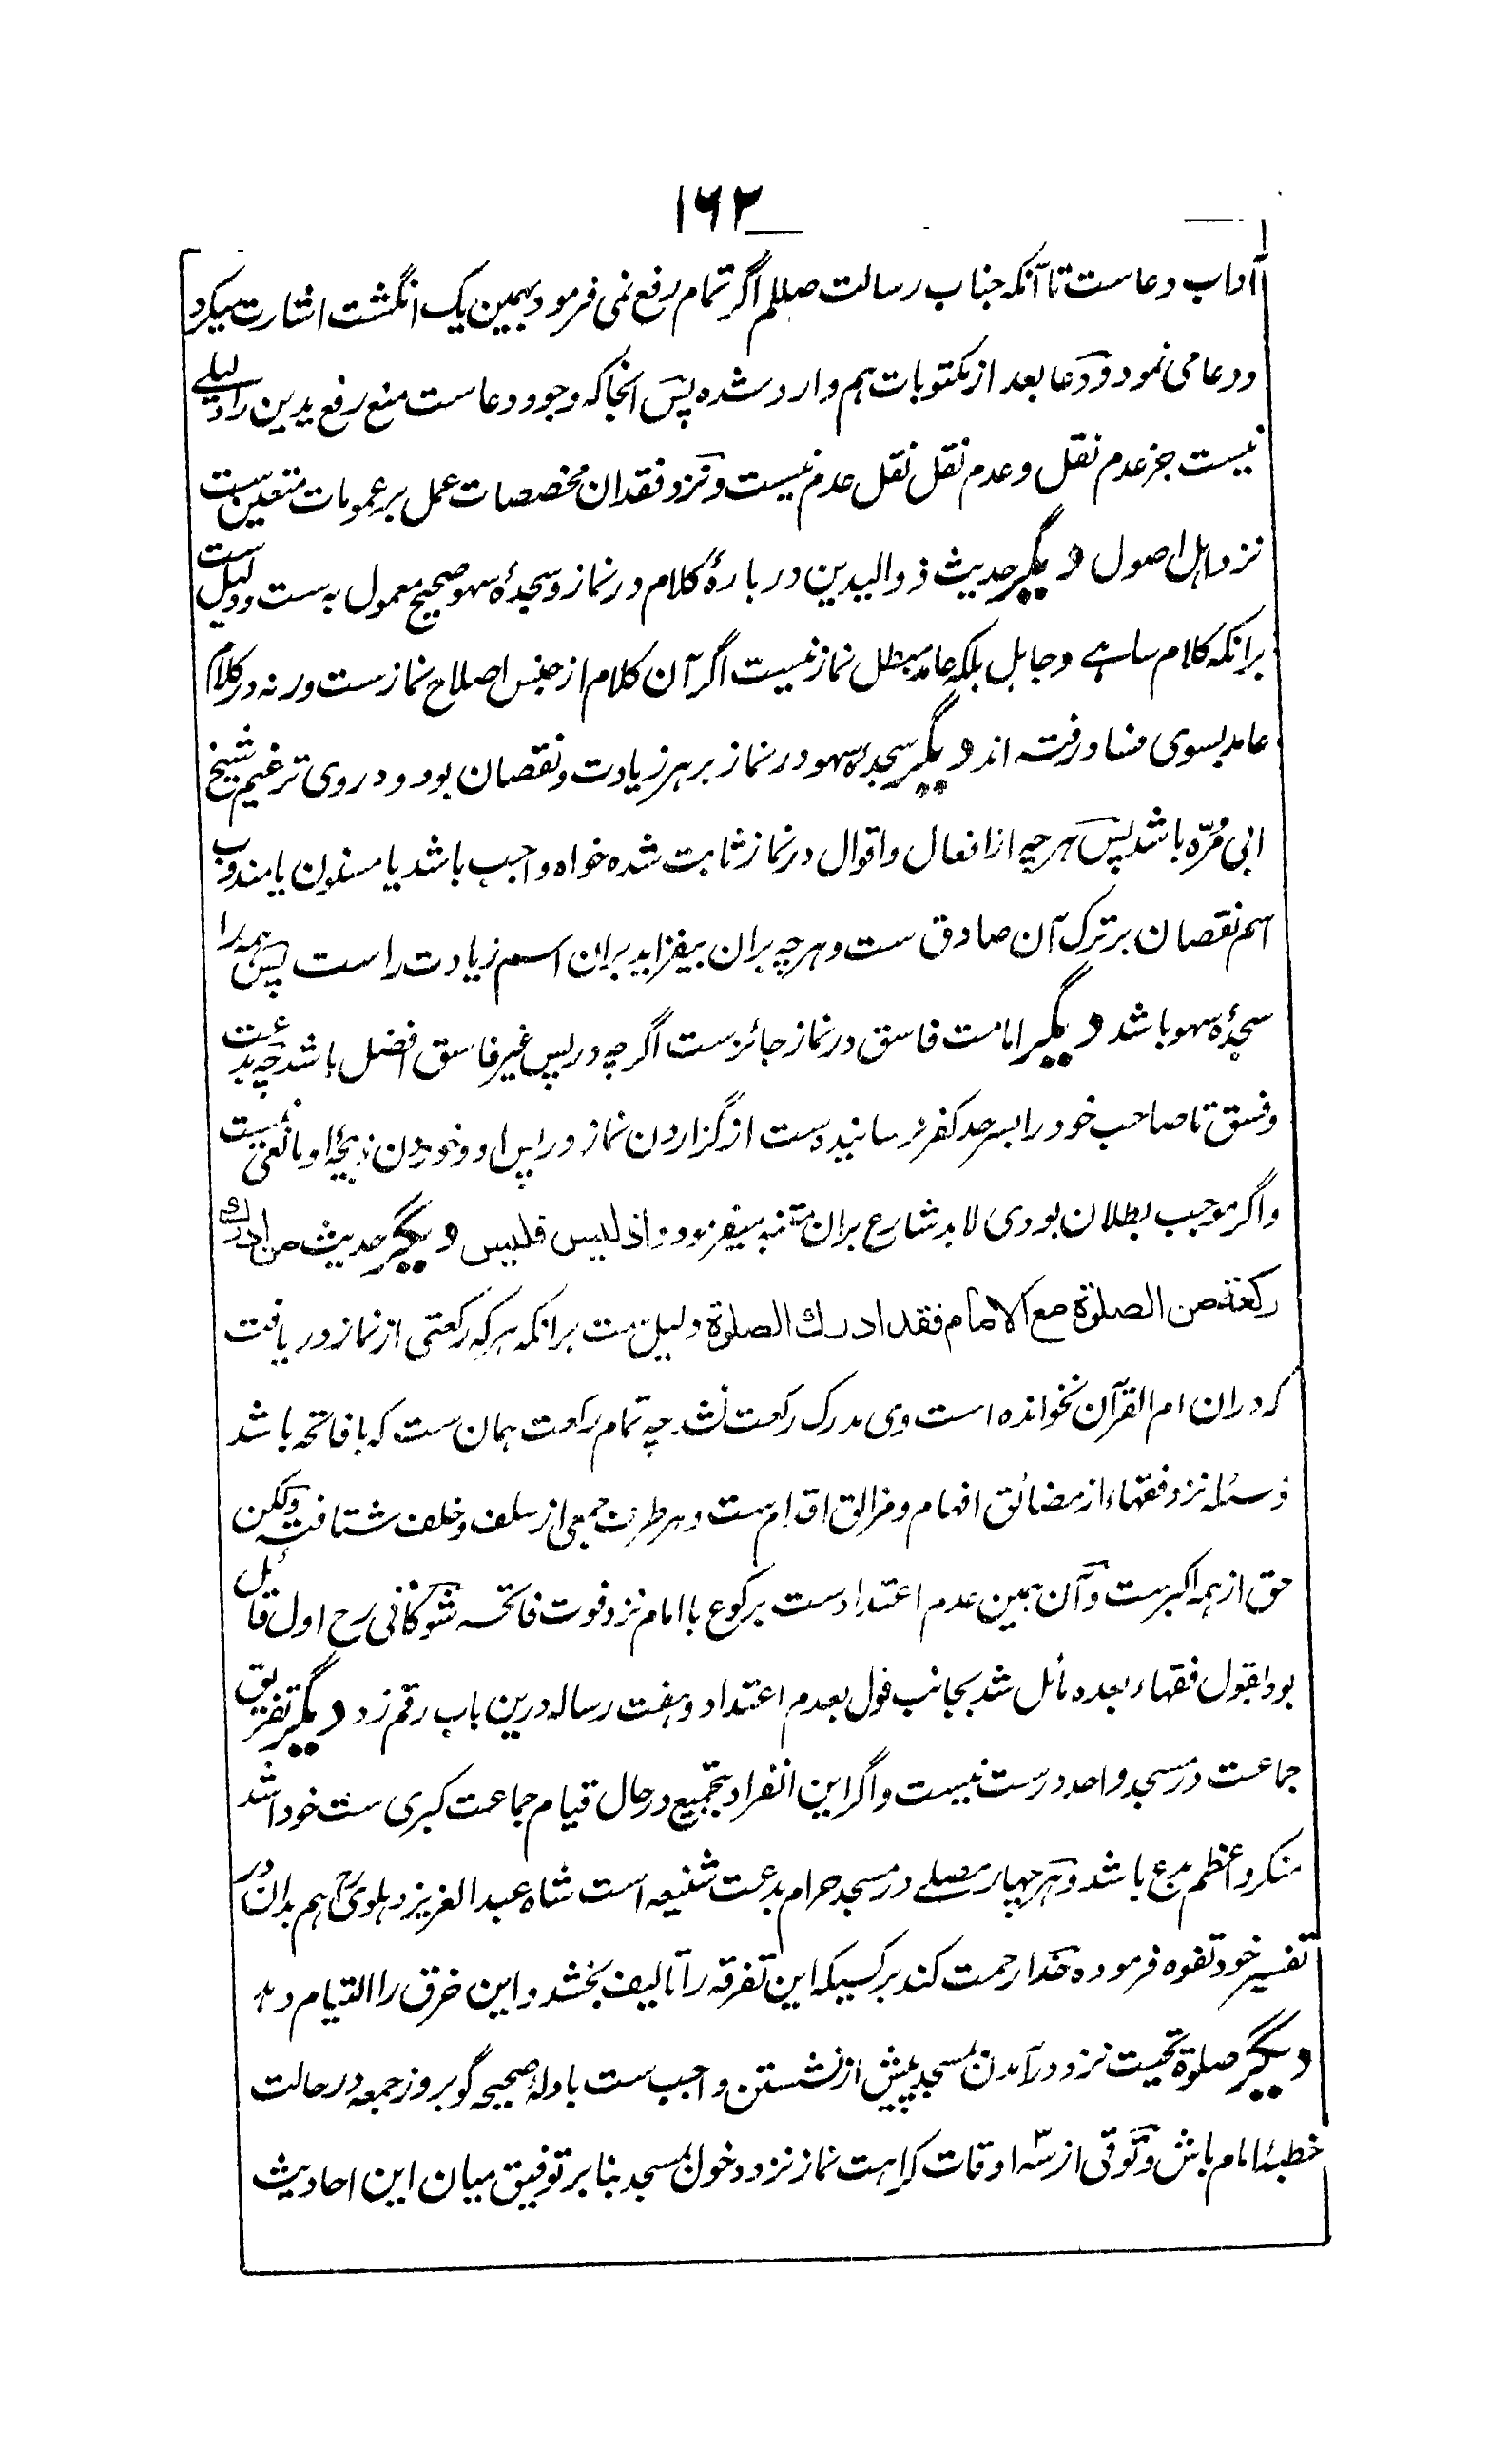 ۱۶۲
آداب دعاست تا آنکه جناب رسالت صللم اگر تمام رفع نمی فرمود بهمین یک انگشت اشارت میکرد
ودعا می نمود و دعا بعد از مکتوبات هم وارد شده پس انجا که وجود دعاست منع رفع یدین را دلیلے
نیست جز عدم نقل و عدم نقل نقل عدم نیست و نزد فقدان مخصصات عمل بر عمومات متعین ست
نزد اهل اصول دیگر حدیث ذو الیدین در بارۀ کلام در نماز و سجدۀ سهو صحیح معمول به ست و دلیل ست
برانکه کلام ساهے و جاهل بلکه عامد مبطل نماز نیست اگر آن کلام از جنس اصلاح نمازست ورنه در کلام
عامد بسوی فساد رفته اند دیگر سجدۀ سهو در نماز بر هر زیادت و نقصان بود و در وی ترغیم شیخ
ابی مُرّه باشد پس هر چه از افعال و اقوال در نماز ثابت شده خواه واجب باشد یا مسنون یا مندوب
اسم نقصان بر ترک آن صادق ست و هر چه بران بیفزاید بران اسم زیادت راست پس همه را
سجدۀ سهو باشد دیگر امامت فاسق در نماز جائزست اگرچه در پس غیر فاسق افضل باشد چه بدعت
وفسق تا صاحب خود را بسرحد کفر نرسانیده ست از گزاردن نماز در پس او و خوردن ذبیحۀ او مانعی نیست
واگر موجب بطلان بودی لابد شارع بران متنبه میفرمود و اذ لیس فلیس دیگر حدیث من ادرك
ركعة من الصلوة مع الامام فقد ادرك الصلوة دلیل ست برانکه هرکه رکعتی از نماز دریافت
که دران ام القرآن نخوانده است وی مدرک رکعت نشد چه تمام رکعت همان ست که با فاتحه باشد
و مسئله نزد فقهاء از مضائق افهام و مزالق اقدام ست و بهر طرف جمعی از سلف و خلف شتافته ولکن
حق از همه اکبرست و آن همین عدم اعتدادست برکوع با امام نزد فوت فاتحه شوکانی رح اول قائل
بود بقول فقهاء بعده مائل شد بجانب قول بعدم اعتداد و هفت رساله درین باب رقم زد دیگر تفریق
جماعت در مسجد واحد درست نیست واگر این انفراد بتجمیع در حال قیام جماعت کبری ست خود اشد
منکر و اعظم بدع باشد و هر چهار مصلے در مسجد حرام بدعت شنیعه است شاه عبدالعزیز دهلوی رح هم بدان در
تفسیر خود تفوه فرموده خدا رحمت کند بر کسیکه این تفرقه را تالیف بخشد و این خرق را التیام دهد
دیگر صلوة تحیت نزد درآمدن بمسجد پیش از نشستن واجب ست بادلۀ صحیحه گو بروز جمعه در حالت
خطبۀ امام باش و توقی از سه اوقات کراهت نماز نزد دخول مسجد بنا بر توفیق میان این احادیث